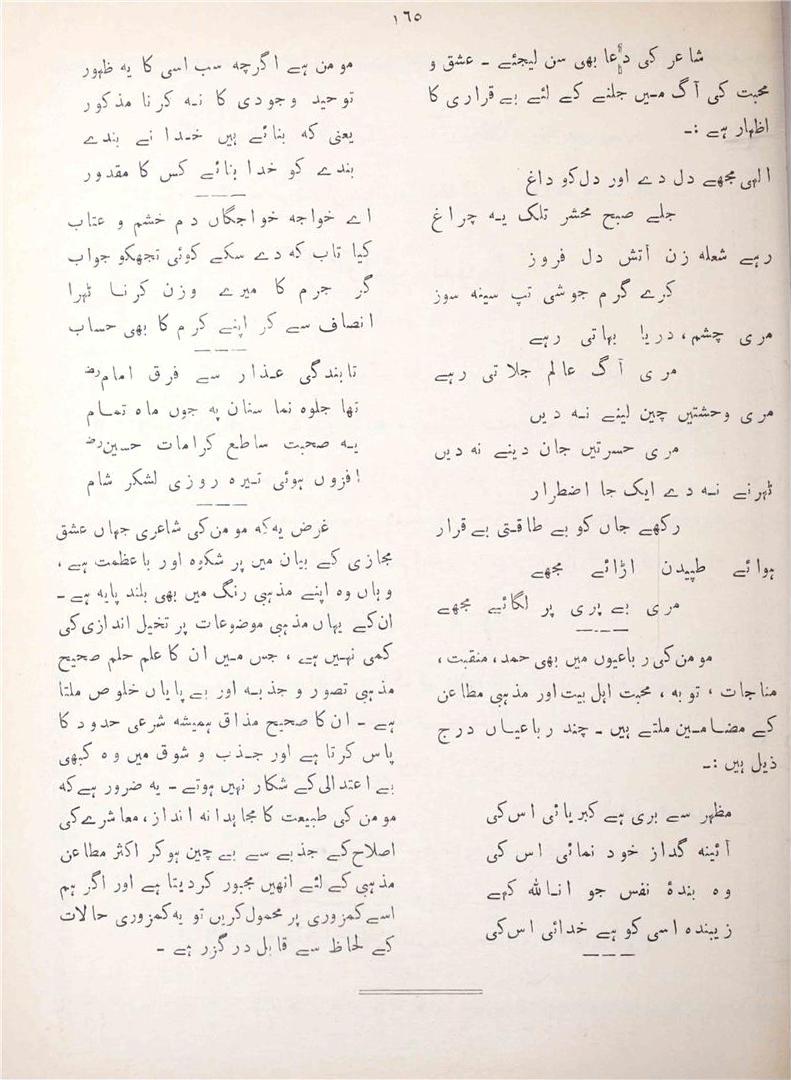 ١٦٥
شاعر کی دعا بھی سن لیجئے ـ عشق و
محبت کی آگ میں جلنے کے لئے بے قراری کا
اظہار ہے :ـ
الٰہی مجھے دل دے اور دل کو داغ
جلے صبح محشر تلک یہ چراغ
رہے شعلہ زن آتش دل فروز
کرے گرم جوشی تپ سینہ سوز
مری چشم، دریا بہاتی رہے
مری آگ عالم جلاتی رہے
مری وحشتیں چین لینے نہ دیں
مری حسرتیں جان دینے نہ دیں
ٹہرنے نہ دے ایک جا اضطرار
رکھے جاں کو بے طاقتی بے قرار
ہوائے طپیدن اڑائے مجھے
مری بے پری پر لگائے مجھے
مومن کی رباعیوں میں بھی حمد، منقبت،
مناجات، توبہ، محبت اہل بیت اور مذہبی مطاعن
کے مضامین ملتے ہیں ـ چند رباعیاں درج
ذیل ہیں :ـ
مظہر سے بری ہے کبریائی اس کی
آئینہ گداز خود نمائی اس کی
وہ بندۂ نفس جو انا اللہ کہے
زیبندہ اسی کو ہے خدائی اس کی
مومن ہے اگرچہ سب اسی کا یہ ظہور
توحید وجودی کا نہ کرنا مذکور
یعنی کہ بنائے ہیں خدا نے بندے
بندے کو خدا بنائے کس کا مقدور
اے خواجہ خواجگاں دم خشم و عتاب
کیا تاب کہ دے سکے کوئی تجھکو جواب
گر جرم کا میرے وزن کرنا ٹہرا
انصاف سے کر اپنے کرم کا بھی حساب
تابندگی عذار سے فرق امامؓ
تھا جلوہ نما سناں پہ جوں ماہ تمام
یہ صحبت ساطع کرامات حسینؓ
افزوں ہوئی تیرہ روزی لشکر شام
غرض یہ کہ مومن کی شاعری جہاں عشق
مجازی کے بیان میں پر شکوہ اور باعظمت ہے،
وہاں وہ اپنے مذہبی رنگ میں بھی بلند پایہ ہے ـ
ان کے یہاں مذہبی موضوعات پر تخیل اندازی کی
کمی نہیں ہے، جس میں ان کا علم حلم صحیح
مذہبی تصور و جذبہ اور بے پایاں خلوص ملتا
ہے ـ ان کا صحیح مذاق ہمیشہ شرعی حدود کا
پاس کرتا ہے اور جذب و شوق میں وہ کبھی
بے اعتدالی کے شکار نہیں ہوتے ـ یہ ضرور ہے کہ
مومن کی طبیعت کا مجاہدانہ انداز، معاشرے کی
اصلاح کے جذبے سے بے چین ہوکر اکثر مطاعن
مذہبی کے لئے انھیں مجبور کردیتا ہے اور اگر ہم
اسے کمزوری پر محمول کریں تو یہ کمزوری حالات
کے لحاظ سے قابل درگزر ہے ـ